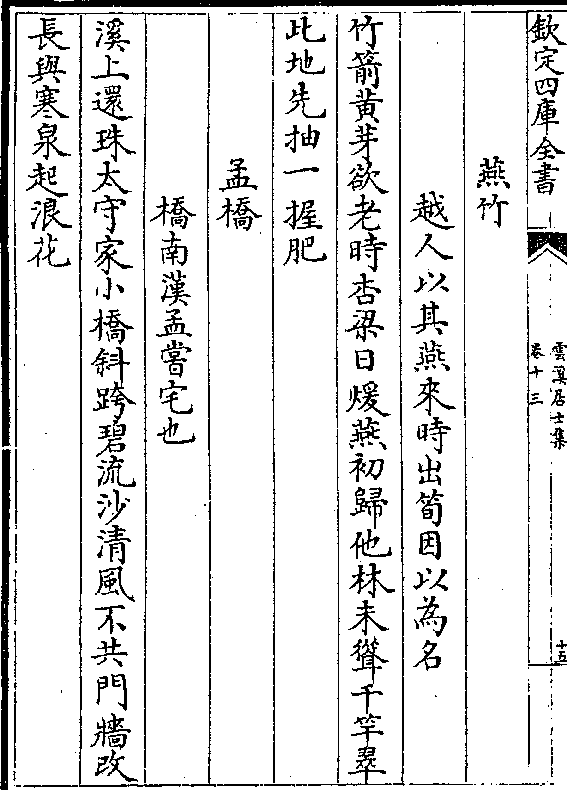 欽定四庫全書
雲溪居士集
卷十三
十五
燕竹
越人以其燕來時出筍因以為名
竹箭黃芽欲老時杏梁日煖燕初歸他林未聳千竿翠
此地先抽一握肥
孟橋
橋南漢孟嘗宅也
溪上還珠太守家小橋斜跨碧流沙清風不共門牆改
長與寒泉起浪花